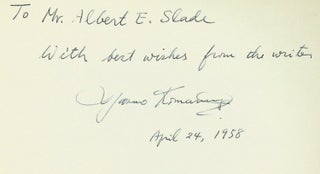 To Mr. Albert E. Slade
With best wishes from the writer
April 24, 1958